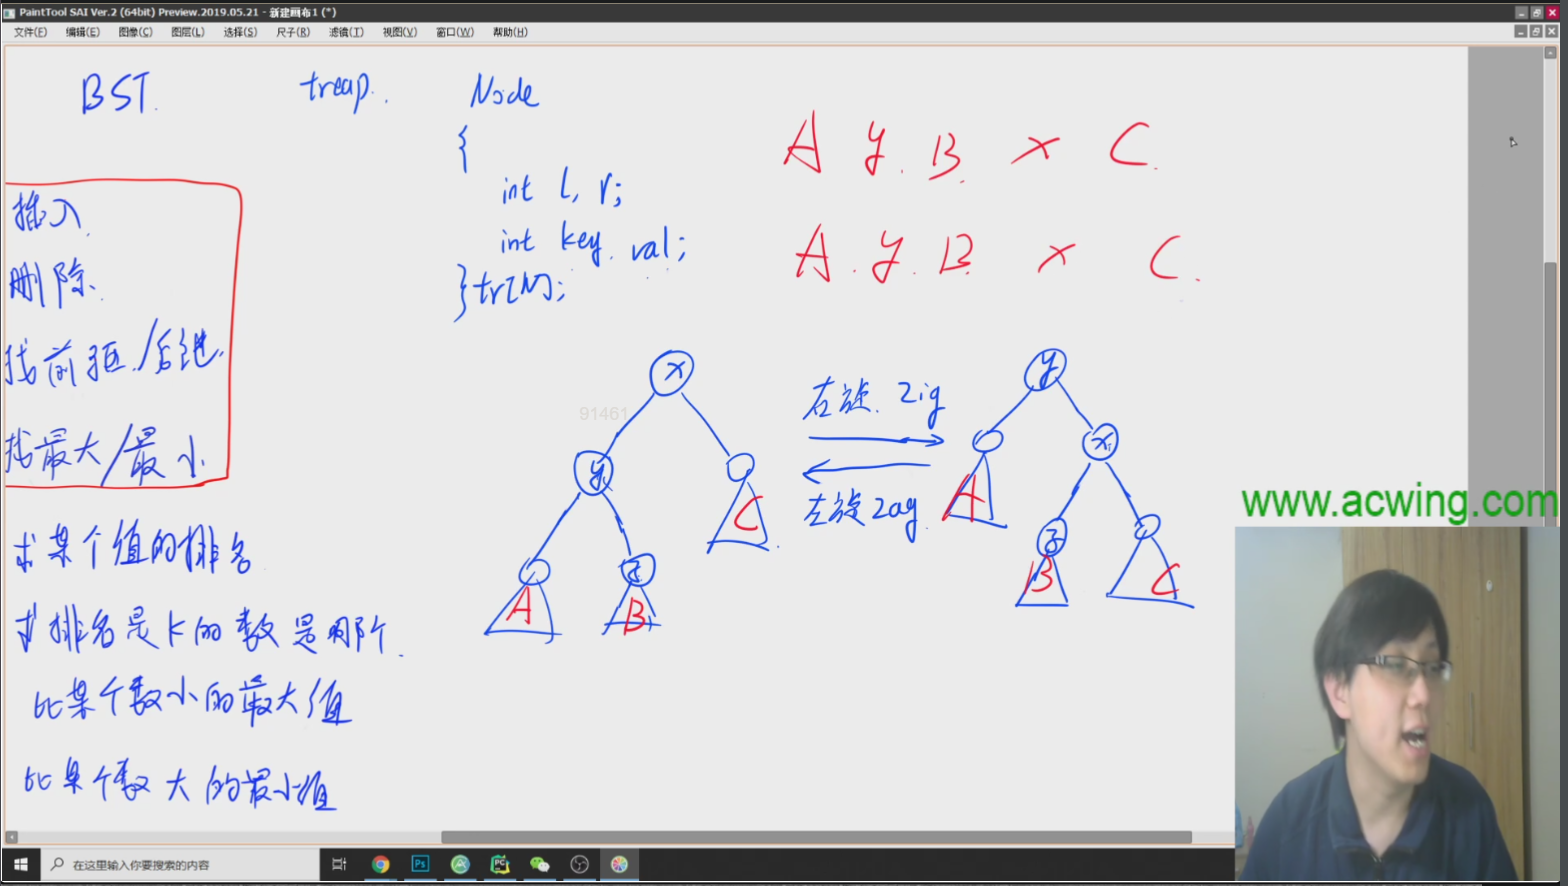 PaintTool SAI Ver.2 (64bit) Preview.2019.05.21 - 新建画布1 (*)
文件(F) 编辑(E) 图像(C) 图层(L) 选择(S) 尺子(R) 滤镜(T) 视图(V) 窗口(W) 帮助(H)
BST. treap. Node
{
int l, r;
int key, val;
} tr[N];
A y. B. x C.
A. y. B x C.
插入
删除
找前驱/后继
找最大/最小
求某个值的排名
求排名是k的数是哪个.
比某个数小的最大值
比某个数大的最小值
x
y
C
A
z
B
91461
右旋. zig
左旋 zag.
y
A
x
z
B
C
www.acwing.com
在这里输入你要搜索的内容
Ps
PC